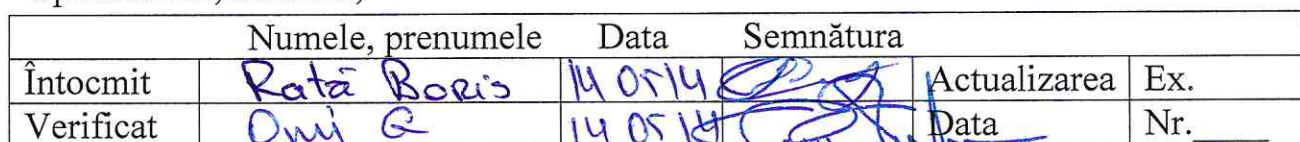 Numele, prenumele Data Semnătura
Întocmit Rată Boris 14 05 14 Actualizarea Ex.
Verificat 14 05 14 Data____ Nr._____